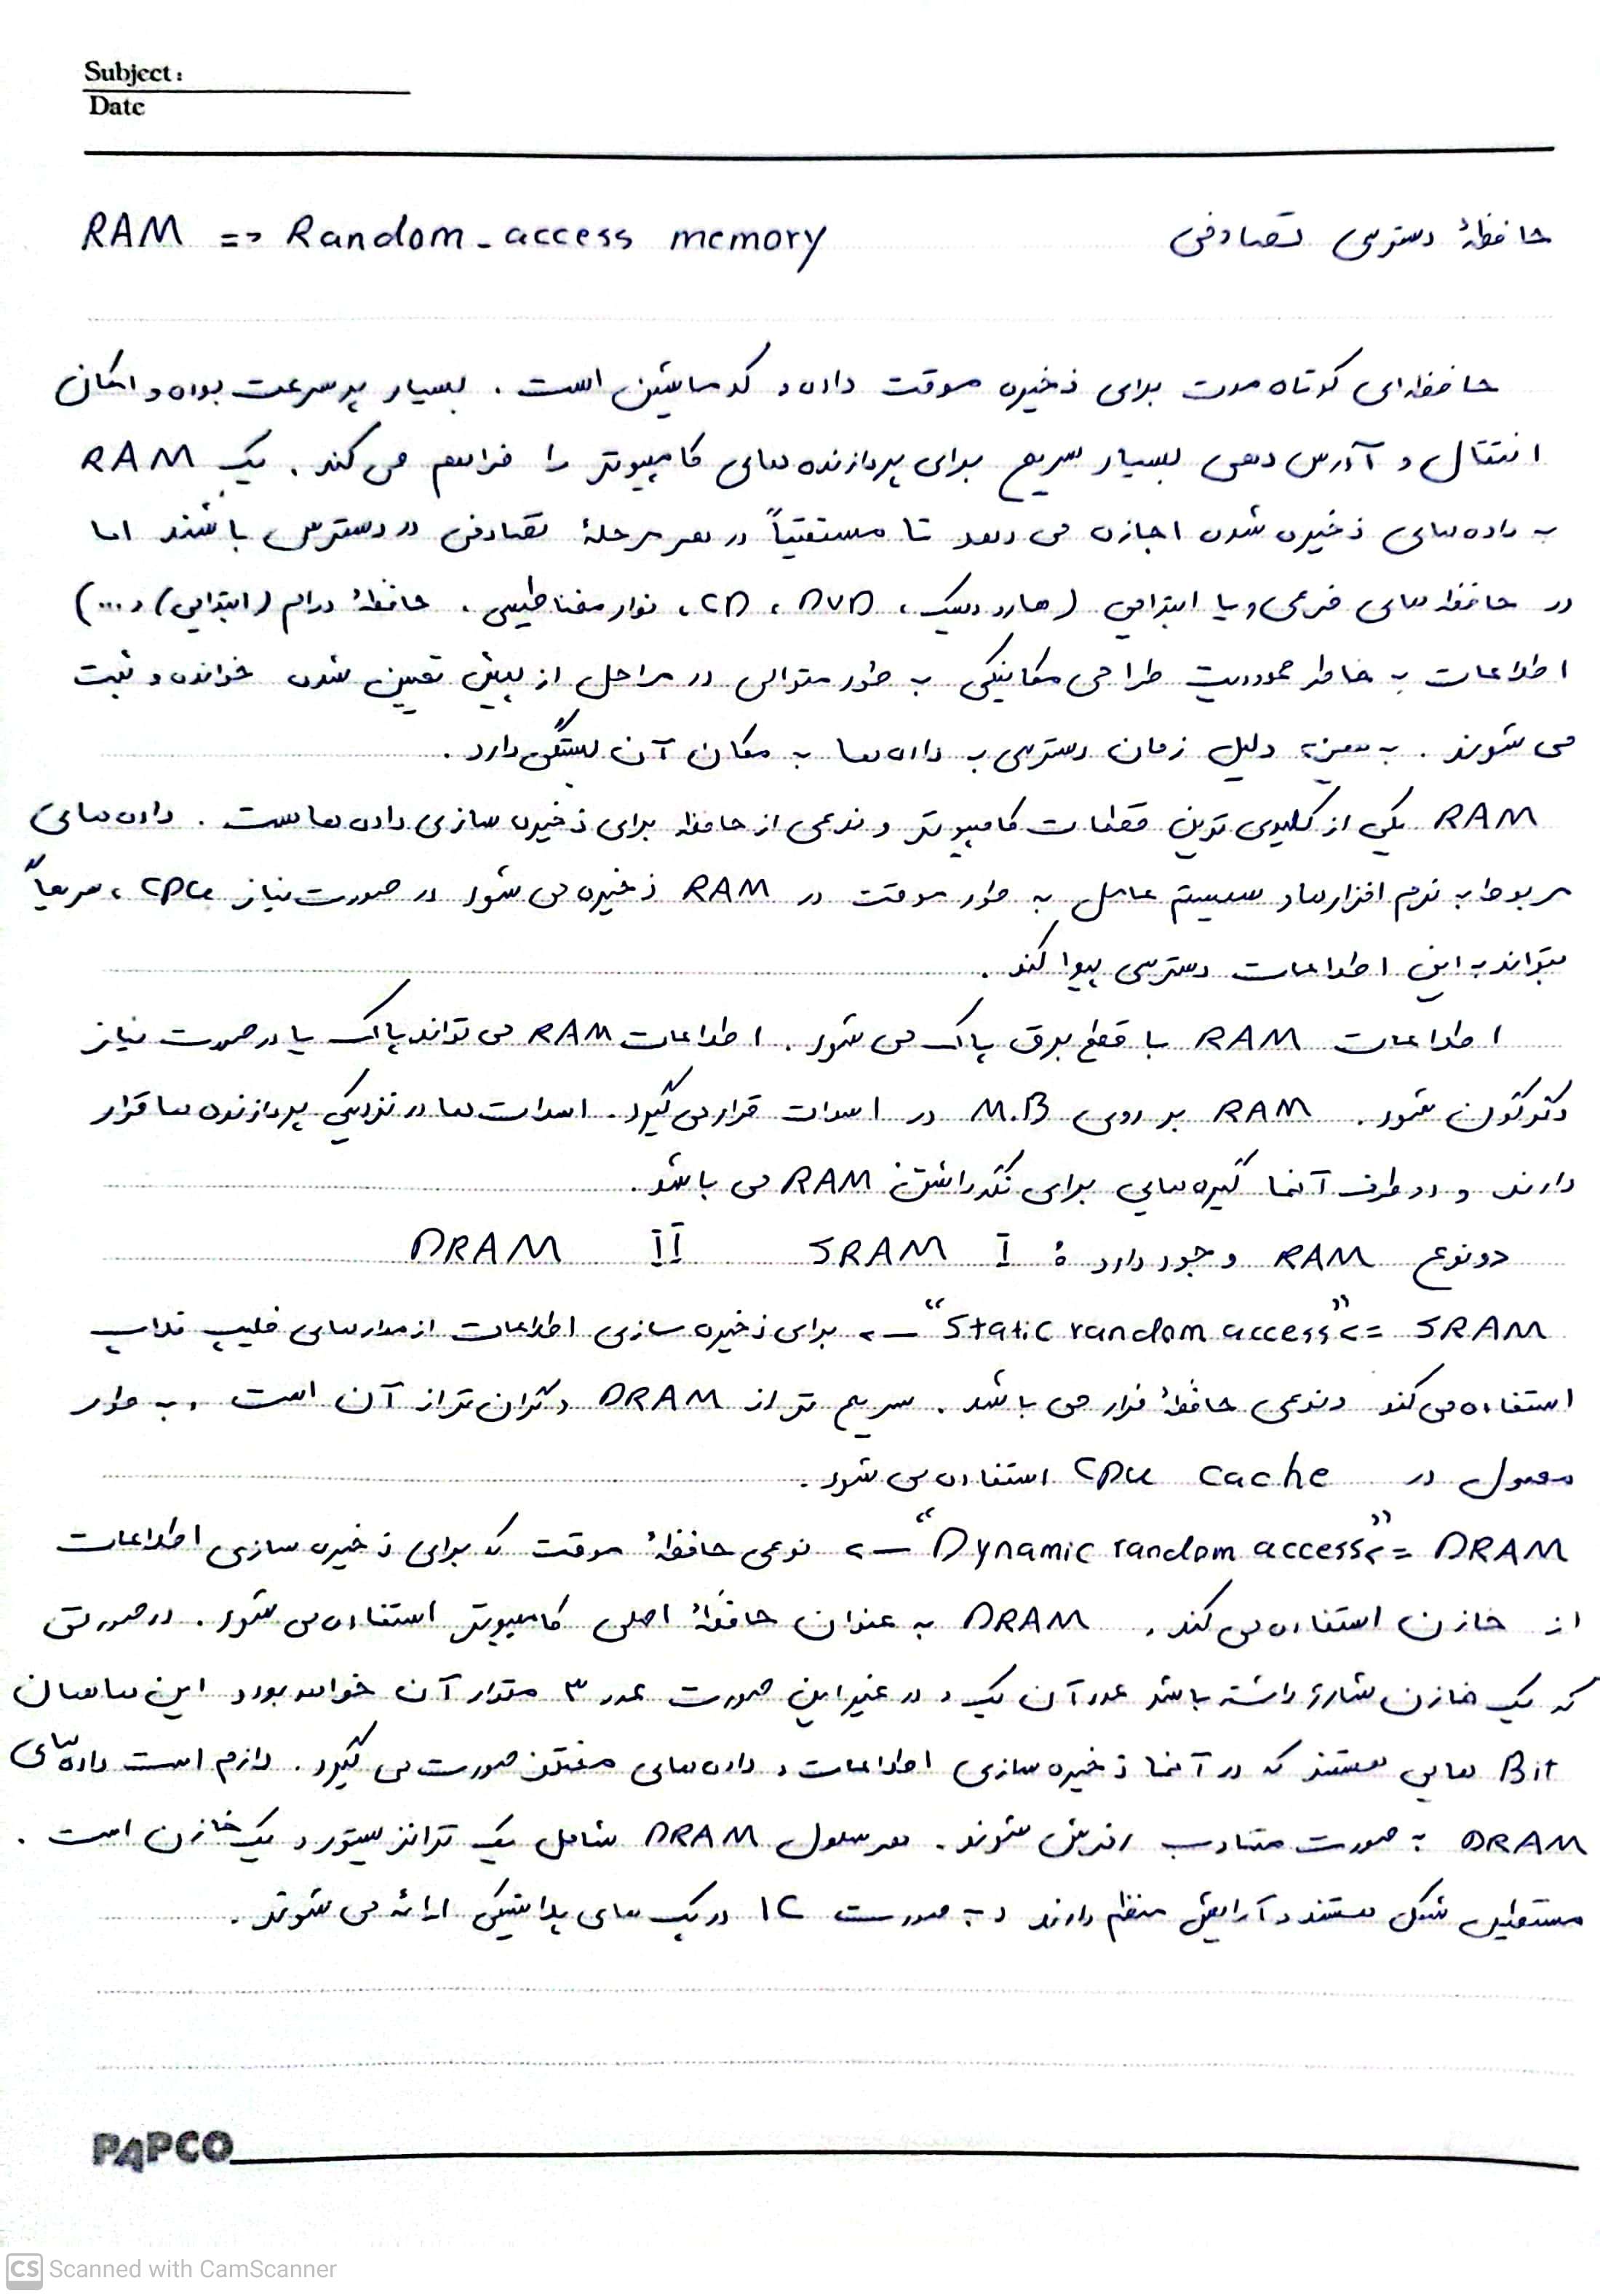 Subject:
Date
RAM => Random-access memory حافظهٔ دسترسی تصادفی
حافظه‌ای کوتاه مدت برای ذخیره موقت داده و کد ماشین است. بسیار پر سرعت بوده و امکان
انتقال و آدرس دهی بسیار سریع برای پردازنده های کامپیوتر را فراهم می کند. یک RAM
به داده های ذخیره شده اجازه می دهد تا مستقیماً در هر مرحلهٔ تصادفی در دسترس باشند اما
در حافظه های فرعی و یا ابتدایی (هارد دیسک، CD، DVD، نوار مغناطیسی، حافظهٔ درام (ابتدایی) و ...)
اطلاعات به خاطر محدودیت طراحی مکانیکی به طور متوالی در مراحل از پیش تعیین شده خوانده و ثبت
می شوند. به همین دلیل زمان دسترسی به داده ها به مکان آن بستگی دارد.
RAM یکی از کلیدی ترین قطعات کامپیوتر و نوعی از حافظه برای ذخیره سازی داده هاست. داده های
مربوط به نرم افزارها و سیستم عامل به طور موقت در RAM ذخیره می شود در صورت نیاز CPU، سریعاً
بتواند به این اطلاعات دسترسی پیدا کند.
اطلاعات RAM با قطع برق پاک می شود. اطلاعات RAM می تواند پاک یا در صورت نیاز
دگرگون شود. RAM بر روی M.B در اسلات قرار می گیرد. اسلات ها در نزدیکی پردازنده ها قرار
دارند و دو طرف آنها گیره هایی برای نگه داشتن RAM می باشد.
دو نوع RAM وجود دارد: I SRAM II DRAM
SRAM => "Static random access" -> برای ذخیره سازی اطلاعات از مدارهای فلیپ فلاپ
استفاده می کند و نوعی حافظهٔ فرار می باشد. سریع تر از DRAM و گران تر از آن است. به طور
معمول در CPU cache استفاده می شود.
DRAM => "Dynamic random access" -> نوعی حافظهٔ موقت که برای ذخیره سازی اطلاعات
از خازن استفاده می کند. DRAM به عنوان حافظهٔ اصلی کامپیوتر استفاده می شود. در صورتی
که یک خازن شارژ داشته باشد عدد آن یک و در غیر این صورت عدد ۳ مقدار آن خواهد بود و این ها همان
Bit هایی هستند که در آنها ذخیره سازی اطلاعات و داده های مختلف صورت می گیرد. لازم است داده های
DRAM به صورت متناوب رفرش شوند. هر سلول DRAM شامل یک ترانزیستور و یک خازن است.
مستطیل شکل هستند و آرایش منظم دارند و به صورت IC در پک های پلاستیکی ارائه می شوند.
PAPCO
CS Scanned with CamScanner